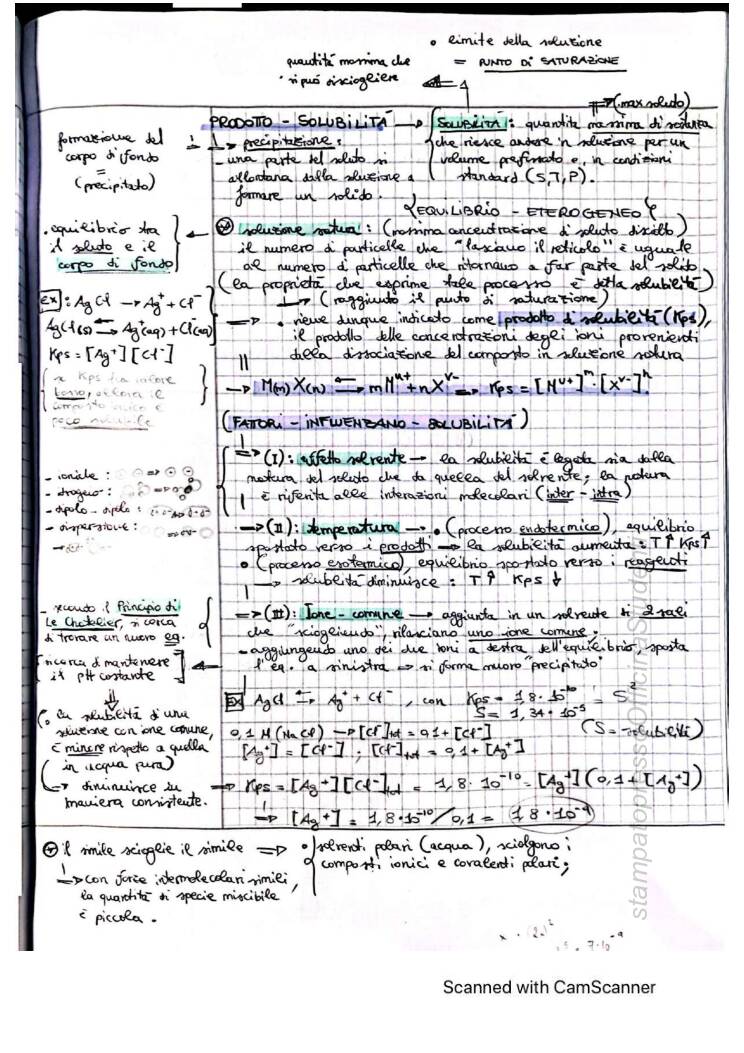 • limite della soluzione
= PUNTO DI SATURAZIONE
quantità massima che
si può disciogliere
(max soluto)
PRODOTTO - SOLUBILITÀ
SOLUBILITÀ: quantità massima di sostanza
che riesce andare in soluzione per un
volume prefissato e, in condizioni
standard (S,T,P).
precipitazione:
- una parte del soluto si
allontana dalla soluzione a
formare un solido.
formazione del
corpo di fondo
=
(precipitato)
{EQUILIBRIO - ETEROGENEO}
soluzione satura: (massima concentrazione di soluto disciolto)
il numero di particelle che "lasciano il reticolo" è uguale
al numero di particelle che ritornano a far parte del solido
(la proprietà che esprime tale processo è detta solubilità)
(raggiunto il punto di saturazione)
→ • viene dunque indicato come prodotto di solubilità (Kps),
il prodotto delle concentrazioni degli ioni provenienti
dalla dissociazione del composto in soluzione satura
→ M(m) X(n) ⇌ mM^u+ + nX^v- → Kps = [M^u+]^m · [X^v-]^n
• equilibrio tra
il soluto e il
corpo di fondo
EX: AgCl → Ag+ + Cl-
AgCl(s) ⇌ Ag+(aq) + Cl-(aq)
Kps = [Ag+][Cl-]
se Kps ha valore
basso allora il
composto ionico è
poco solubile
(FATTORI - INFLUENZANO - SOLUBILITÀ)
⇒ (I): effetto solvente → la solubilità è legata sia dalla
natura del soluto che da quella del solvente; la natura
è riferita alle interazioni molecolari (inter - intra)
- ionici:
- idrogeno:
- dipolo - dipolo:
- dispersione:
⇒ (II): temperatura → • (processo endotermico), equilibrio
spostato verso i prodotti → la solubilità aumenta: T↑ Kps↑
• (processo esotermico), equilibrio spostato verso i reagenti
→ solubilità diminuisce: T↑ Kps↓
⇒ (III): Ione - comune → aggiunta in un solvente di 2 sali
che "sciogliendo", rilasciano uno ione comune;
- aggiungendo uno dei due ioni a destra dell'equilibrio, sposta
l'eq. a sinistra ⇒ si forma nuovo "precipitato"
- secondo il Principio di
Le Chatelier, si cerca
di trovare un nuovo eq.
ricerca di mantenere
il pH costante
(• la solubilità di una
soluzione con ione comune,
è minore rispetto a quella
in acqua pura)
→ diminuisce in
maniera consistente.
EX AgCl ⇌ Ag+ + Cl-, con Kps = 1,8·10^-10 = S^2
S = 1,34·10^-5
(S = solubilità)
0,1 M (NaCl) → [Cl-]tot = 0,1 + [Cl-]
[Ag+] = [Cl-]; [Cl-]tot = 0,1 + [Ag+]
→ Kps = [Ag+][Cl-]tot = 1,8·10^-10 = [Ag+](0,1 + [Ag+])
→ [Ag+] = 1,8·10^-10/0,1 = 1,8·10^-9
il simile scioglie il simile ⇒ • solventi polari (acqua), sciolgono i
composti ionici e covalenti polari;
→ con forze intermolecolari simili,
la quantità di specie miscibile
è piccola.
stampatopressoOfficinaStudenti
Scanned with CamScanner